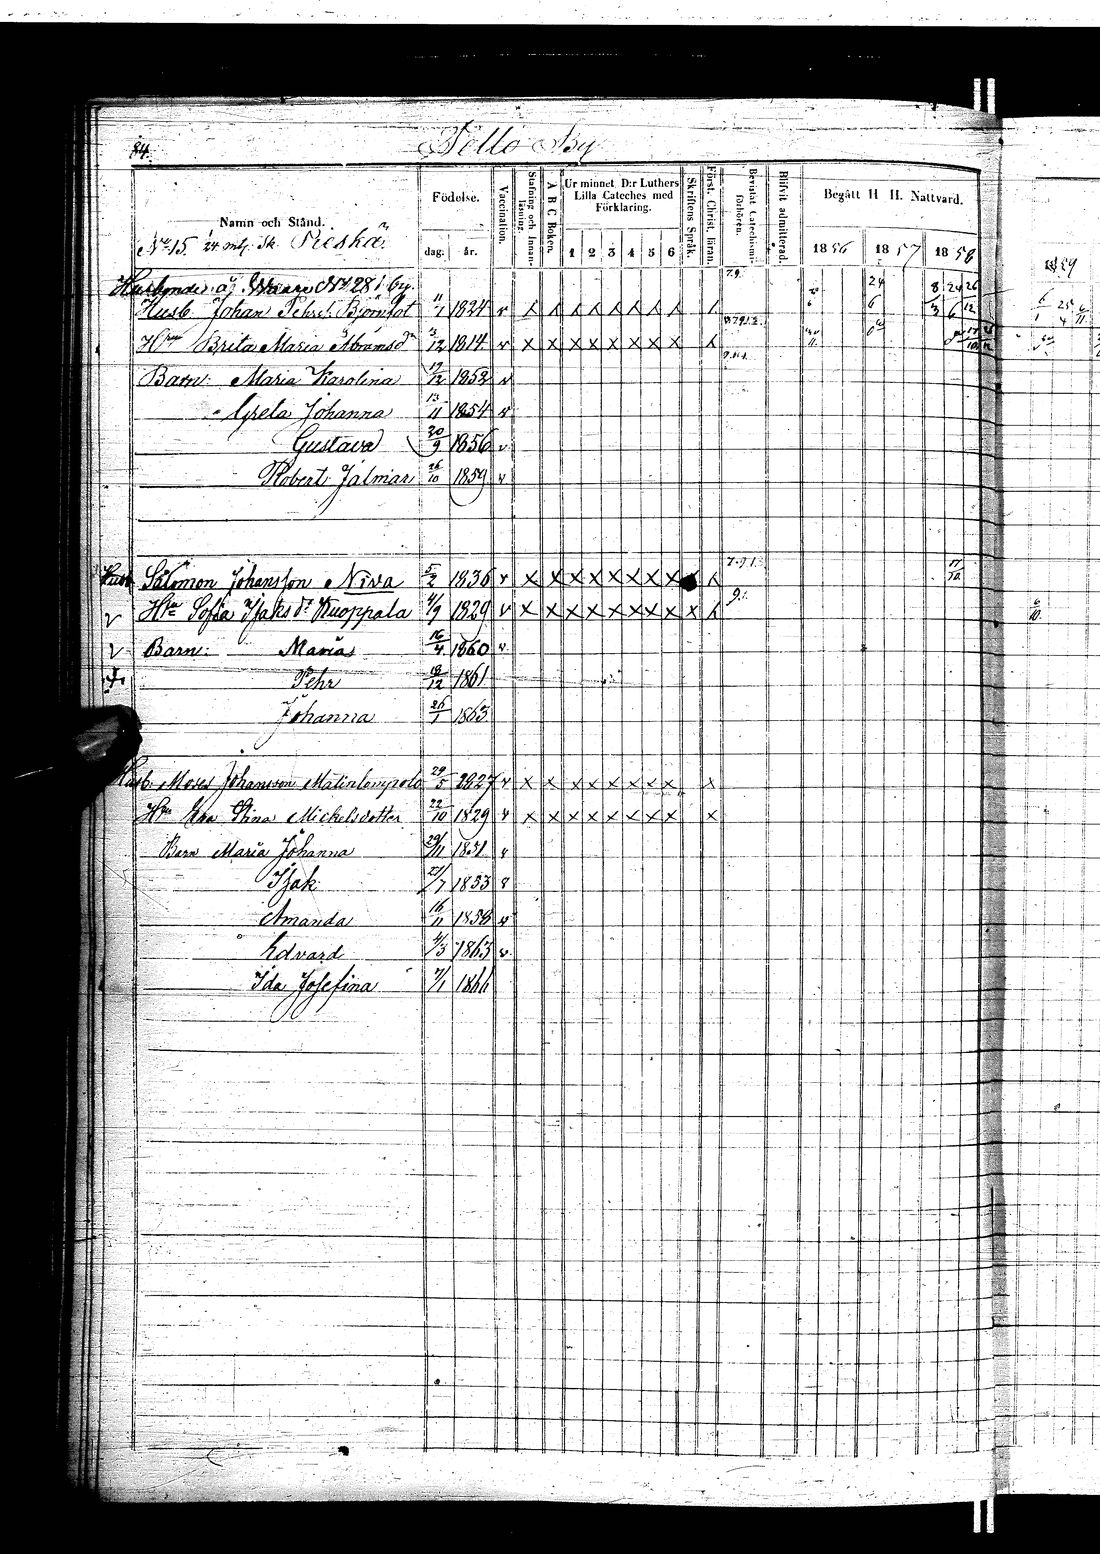 84.
Tello By
Namn och Stånd.
Födelse.
dag:
år.
Vaccination.
Stafning och Innanläsning.
A B C Boken.
Ur minnet D:r Luthers
Lilla Cateches med
Förklaring.
1 2 3 4 5 6
Skriftens Språk.
Först. Christ. läran.
Bevistat Catechismi-förhören.
Blifvit admitterad.
Begått H H. Nattvard.
1856 1857 1858
1859
No 15. 24 mtl. Sk. Pieskä
No 28 i by.
Husb. Johan Pehrs. Björnfot 11/1 1824 v
Hru Brita Maria Abramsdr 3/12 1814 v x x x x x x x x
Barn: Maria Karolina 19/12 1852 v
Greta Johanna 13/11 1854 v
Gustava 20/9 1856 v
Robert Jalmar 26/10 1859 v
Husb. Salomon Johansson Niva 5/2 1836 v x x x x x x x x
v Hru Sofia Isaks dr Kuoppala 4/9 1829 v x x x x x x x x x
v Barn: Maria 16/4 1860 v
Pehr 18/12 1861
Johanna 26/1 1863
Husb. Moses Johansson Matinlompolo 29/5 1827 v x x x x x x x x x
Hru Eva Stina Mickelsdotter 22/10 1829 v x x x x x x x x x
Barn Maria Johanna 29/11 1851 v
Isak 27/7 1853 v
Amanda 16/11 1858 v
Edvard 4/3 1863 v
Ida Josefina 7/1 1866